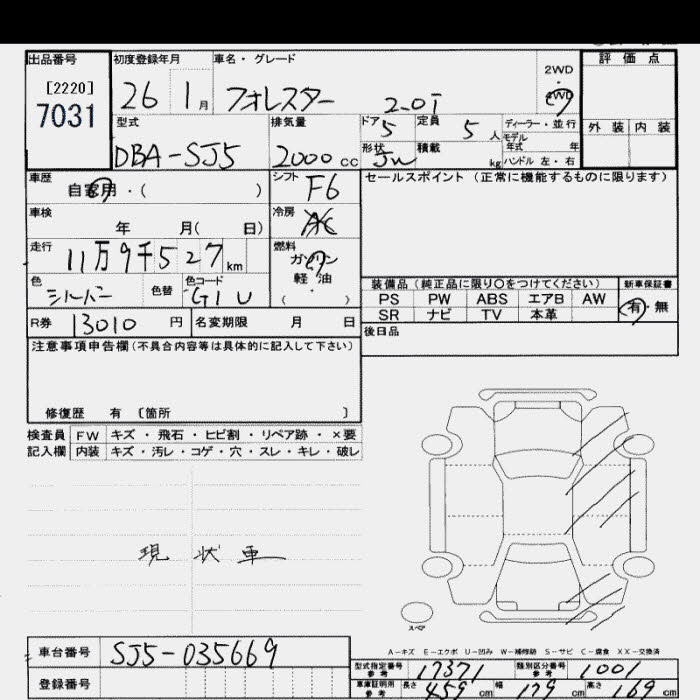 出品番号 初度登録年月 車名・グレード 評価点
[2220] 2WD
7031 26 1月 フォレスター 2.0i ・ 4WD
型式 排気量 ドア 5 定員 5人 ディーラー・並行 外装 内装
モデル年式 年
DBA-SJ5 2000cc 形状 積載 kg ハンドル 左・右
車歴 自家用・( ) シフト F6 セールスポイント(正常に機能するものに限ります)
車検 年 月( 日) 冷房 AC
走行 11万9千527km 燃料 ガソリン
軽・油
色 シルバー 色替 色コード G1U ( )
装備品(純正品に限り○をつけてください) 新車保証書
PS PW ABS エアB AW 有・無
SR ナビ TV 本革
R券 13010円 名変期限 月 日 後日品
注意事項申告欄(不具合内容等は具体的に記入して下さい)
修復歴 有 〔箇所 〕
検査員 FW キズ・飛石・ヒビ割・リペア跡・×要
記入欄 内装 キズ・汚レ・コゲ・穴・スレ・キレ・破レ
現状車
スペア
A-キズ E-エクボ U-凹み W-補修跡 S-サビ C-腐食 XX-交換済
車台番号 SJ5-035669
型式指定番号 参考 17371 類別区分番号 参考 1001
登録番号
車庫証明用 参考 長さ 459cm 幅 179cm 高さ 169cm